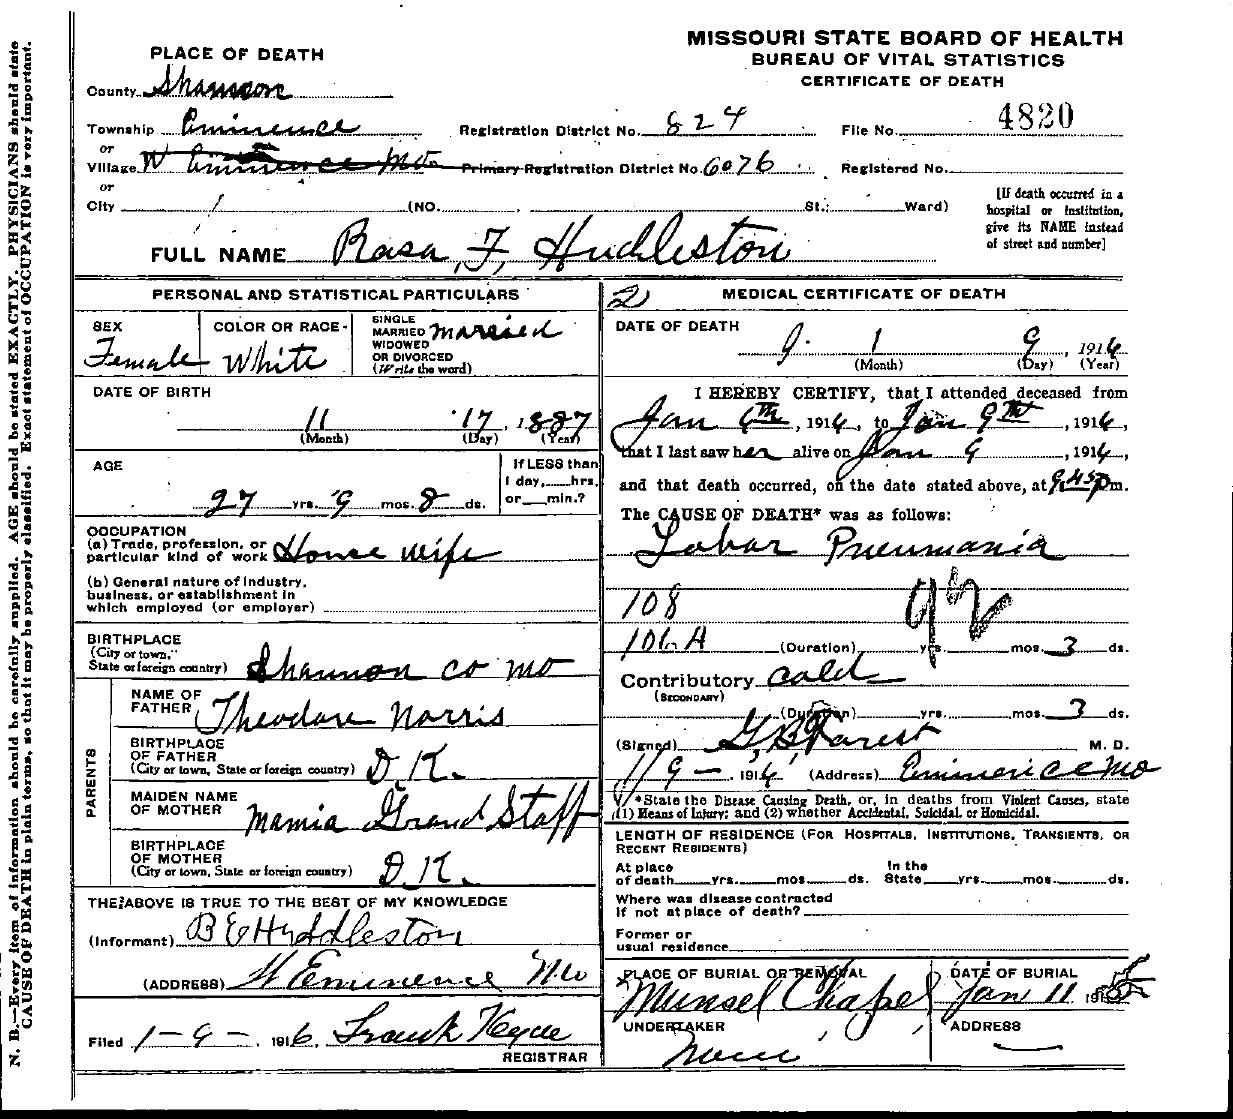 MISSOURI STATE BOARD OF HEALTH
BUREAU OF VITAL STATISTICS
CERTIFICATE OF DEATH
PLACE OF DEATH
County Shannon
Township Eminence Registration District No. 824 File No. 4820
or
Village W Eminence Mo Primary Registration District No. 6076 Registered No.
or
City (NO. St.; Ward)
[If death occurred in a
hospital or institution,
give its NAME instead
of street and number]
FULL NAME Rosa, F, Huddleston
PERSONAL AND STATISTICAL PARTICULARS
SEX
Female
COLOR OR RACE
White
SINGLE
MARRIED
WIDOWED
OR DIVORCED
(Write the word)
married
DATE OF BIRTH
11 17, 1887
(Month) (Day) (Year)
AGE
27 yrs. 9 mos. 8 ds.
If LESS than
1 day, hrs.
or min.?
OCCUPATION
(a) Trade, profession, or
particular kind of work House wife
(b) General nature of industry,
business, or establishment in
which employed (or employer)
BIRTHPLACE
(City or town,
State or foreign country) Shannon co mo
PARENTS
NAME OF
FATHER Theodore Norris
BIRTHPLACE
OF FATHER
(City or town, State or foreign country) D.K.
MAIDEN NAME
OF MOTHER Mamia Grand Staff
BIRTHPLACE
OF MOTHER
(City or town, State or foreign country) D.K.
THE ABOVE IS TRUE TO THE BEST OF MY KNOWLEDGE
(Informant) B E Huddleston
(ADDRESS) W Eminence Mo
Filed 1-9-, 1916, Frank Hyde
REGISTRAR
2 MEDICAL CERTIFICATE OF DEATH
DATE OF DEATH
1 9, 1916
(Month) (Day) (Year)
I HEREBY CERTIFY, that I attended deceased from
Jan 6th, 1916, to Jan 9th, 1916,
that I last saw her alive on Jan 9, 1916,
and that death occurred, on the date stated above, at 9.45 Pm.
The CAUSE OF DEATH* was as follows:
Lobar Pneumania
108 92
106A (Duration) yrs. mos. 3 ds.
Contributory cold
(SECONDARY)
(Duration) yrs. mos. 3 ds.
(Signed) M. D.
1/9-, 1916 (Address) Eminence Mo
*State the Disease Causing Death, or, in deaths from Violent Causes, state
(1) Means of Injury; and (2) whether Accidental, Suicidal, or Homicidal.
LENGTH OF RESIDENCE (FOR HOSPITALS, INSTITUTIONS, TRANSIENTS, OR
RECENT RESIDENTS)
At place In the
of death yrs. mos. ds. State yrs. mos. ds.
Where was disease contracted
if not at place of death?
Former or
usual residence
PLACE OF BURIAL OR REMOVAL
Munsel Chapel
DATE OF BURIAL
Jan 11 191
UNDERTAKER
None
ADDRESS
N. B.—Every item of information should be carefully supplied. AGE should be stated EXACTLY. PHYSICIANS should state
CAUSE OF DEATH in plain terms, so that it may be properly classified. Exact statement of OCCUPATION is very important.